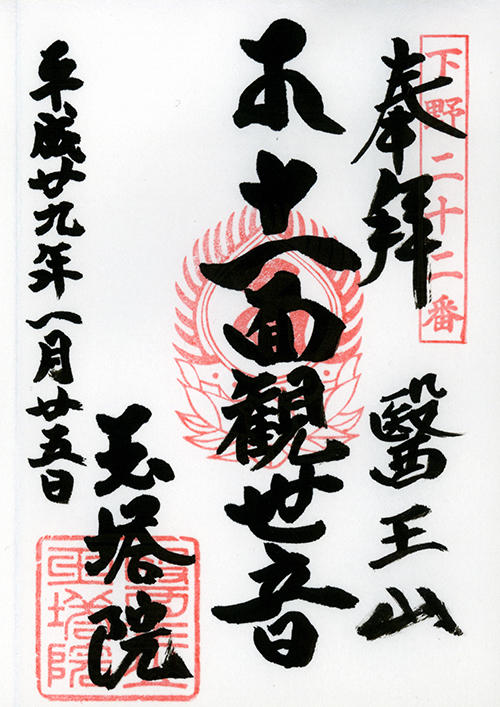 下野二十二番
奉拝
醫王山
十一面観世音
平成廿九年一月廿五日
玉塔院
玉塔院